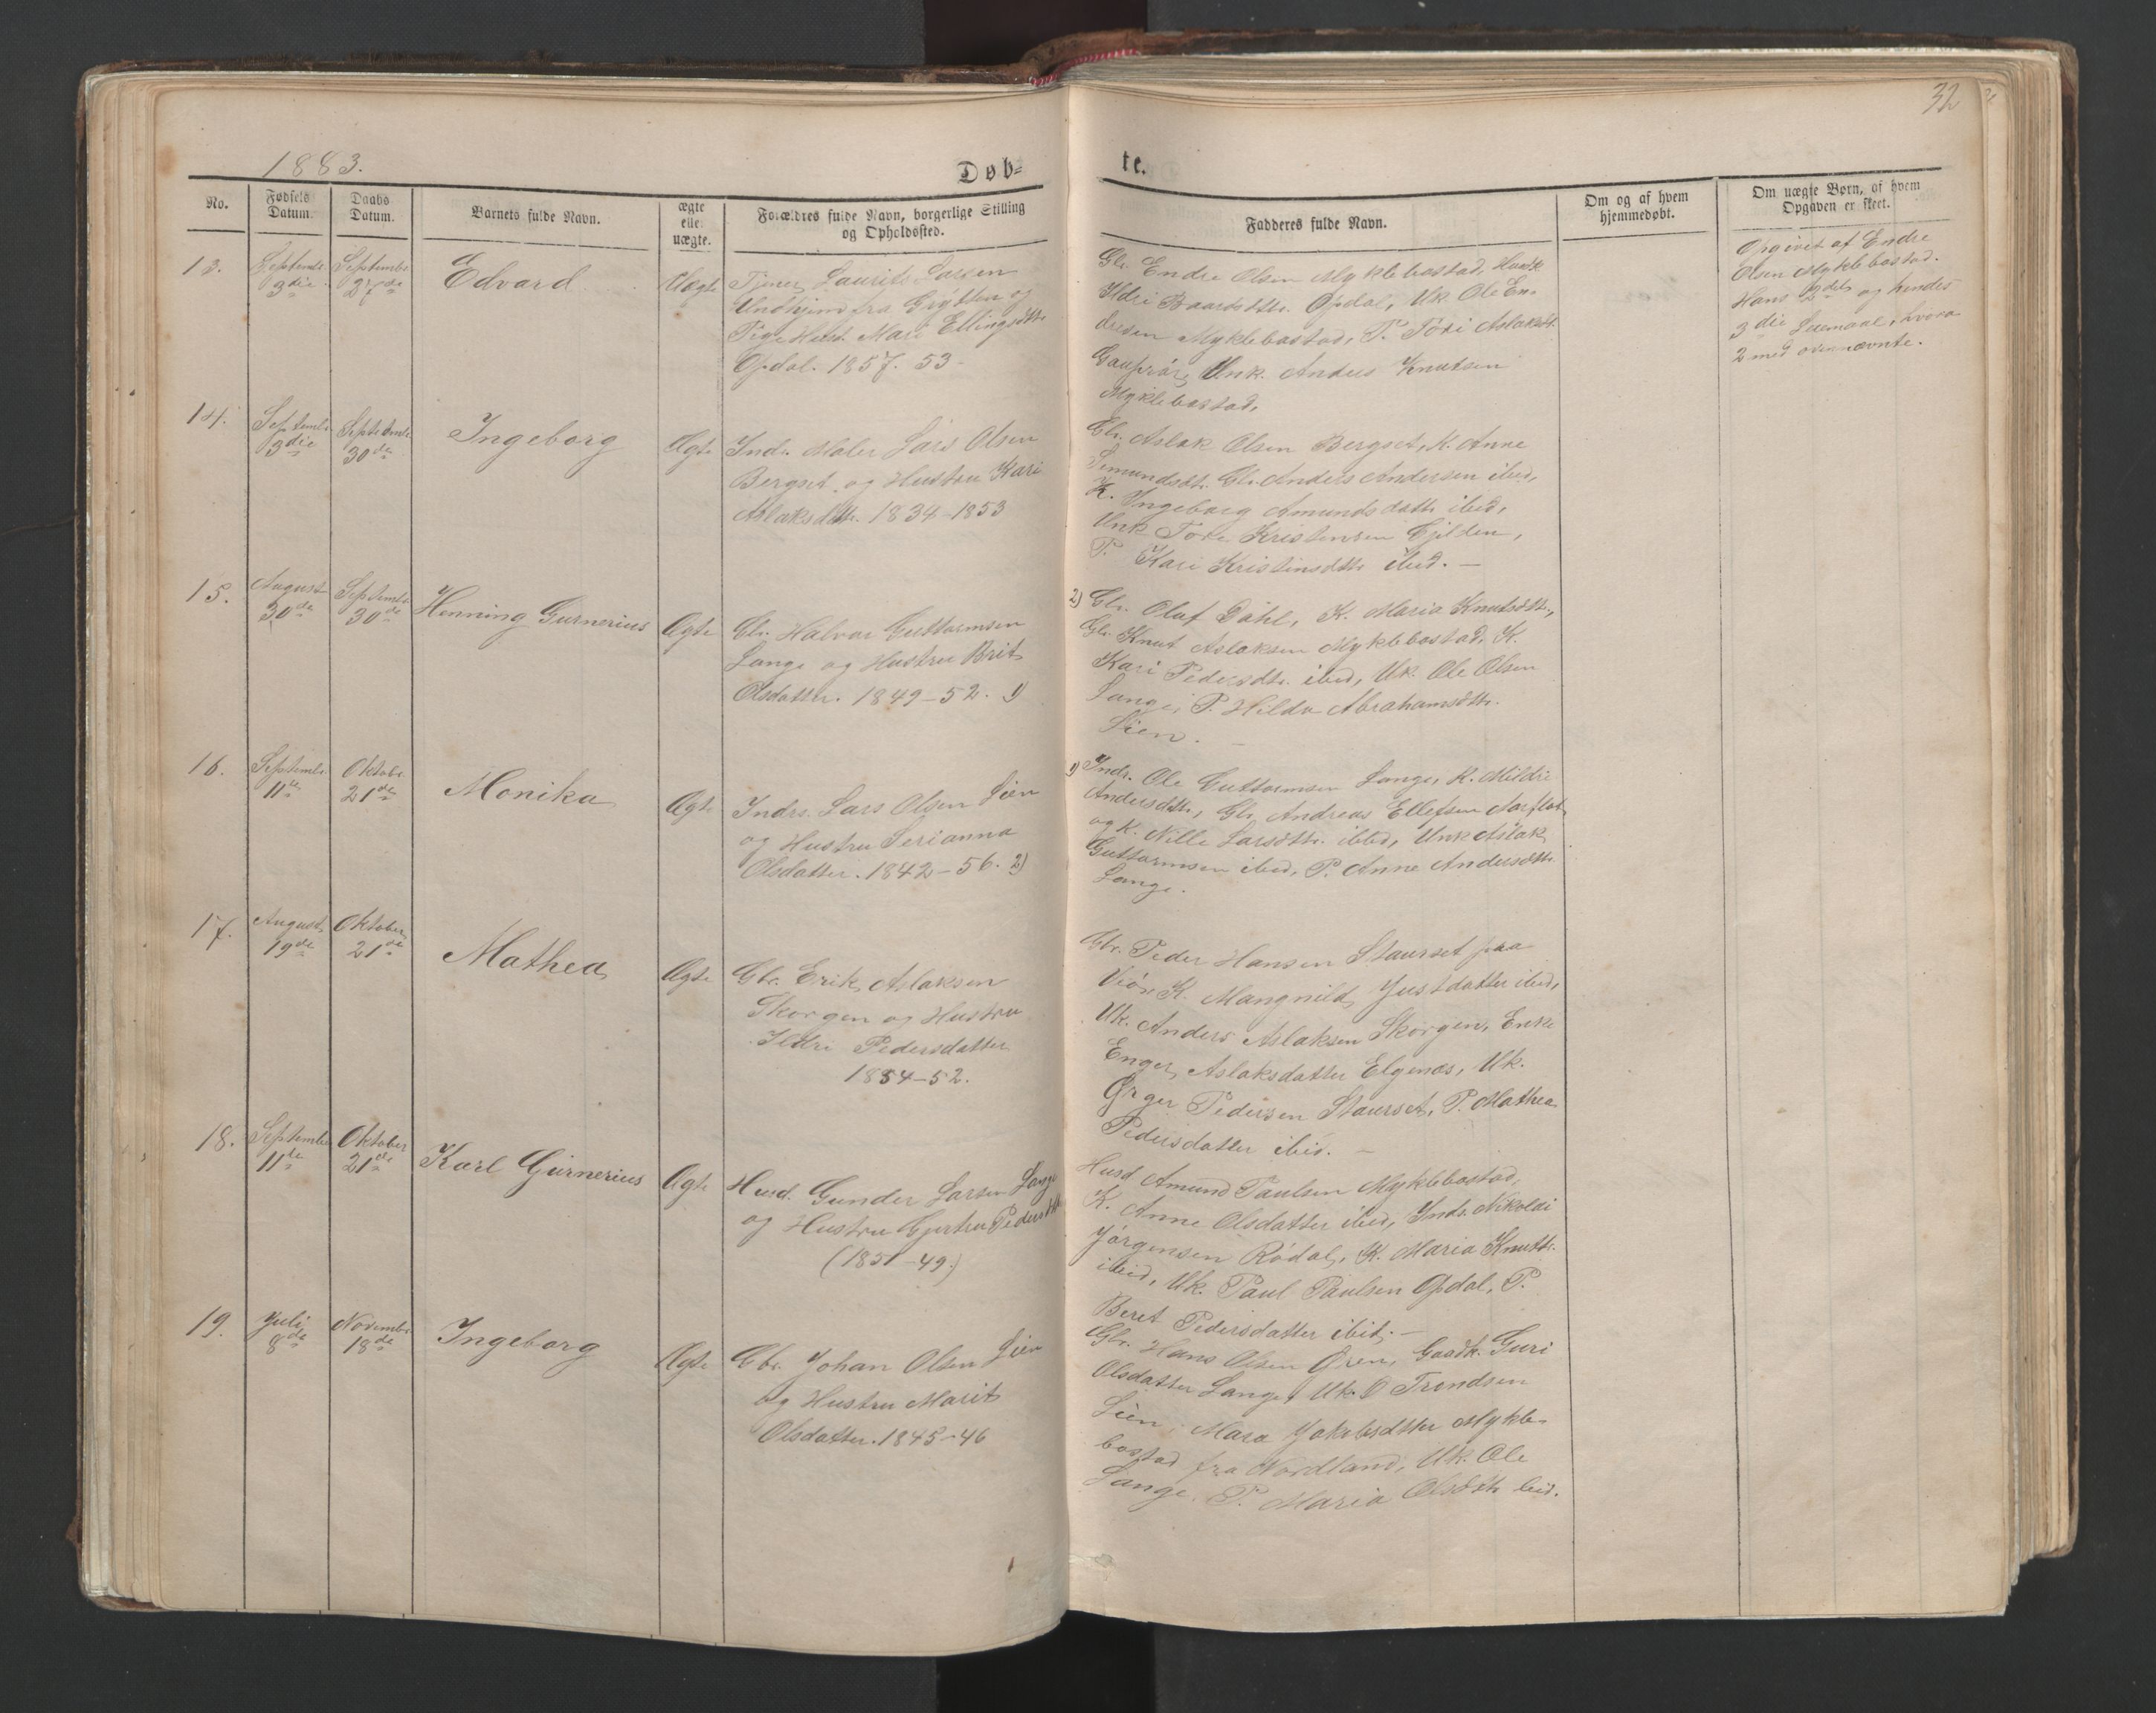 32
1883.
Døb-
te.
No.
Fødsels Datum.
Daabs Datum.
Barnets fulde Navn.
ægte eller uægte.
Forældres fulde Navn, borgerlige Stilling og Opholdssted.
Fadderes fulde Navn.
Om og af hvem hjemmedøbt.
Om uægte Børn, af hvem Opgaven er skeet.
13.
Septembr. 3die
Septembr. 27de
Edvard
Uægte
Tjener Laurits Larsen
Undhjem fra Grytten og
Pige Husd. Mari Ellingsdtr.
Opdal. 1857. 53-
Gbr. Endre Olsen Myklebostad, Husk.
Ildri Baardsdtr. Opdal, Uk. Ole En-
dresen Myklebostad, P. Töri Aslaksdtr.
Gauprör, Unk. Anders Knutsen
Myklebostad.
Opgivet af Endre
Olsen Myklebostad.
Hans 2det og hendes
3die Leiermaal, hvoraf
2 med ovennævnte.
14.
Septembr. 3die
Septembr. 30de
Ingeborg
Ægte
Indr. Maler Lars Olsen
Bergset og Hustru Kari
Aslaksdatr. 1834-1853
Gbr. Aslak Olsen Bergset, K. Anne
Semundsdtr. Gbr. Anders Andersen ibid,
K. Ingeborg Amundsdattr ibid,
Unk Tore Kristensen Gjelden,
P. Kari Kristensdtr. ibid. —
15.
August 30de
Septembr. 30de
Henning Gurnerius
Ægte
Gbr. Halvor Guttormsen
Lange og Hustru Brit
Olsdatter. 1849-52. 1)
2) Gbr. Oluf Dahl, K. Maria Knutsdtr.,
Gbr. Knut Aslaksen Myklebostad, K.
Kari Pedersdtr. ibid, Uk. Ole Olsen
Lange, P. Hilda Abrahamsdtr.
Lien. —
16.
Septembr. 11te
Oktobr. 21de
Monika
Ægte
Indrs. Lars Olsen Lien
og Hustru Serianna
Olsdatter. 1842-56. 2)
1) Indr. Ole Guttormsen Lange, K. Mildri
Andersdtr., Gbr. Andreas Ellefsen Aarflot
og K. Nille Larsdtr. ibid, Unk Aslak
Guttormsen ibid, P. Anne Andersdtr.
Lange.
17.
August 19de
Oktober 21de
Mathea
Ægte
Gbr. Erik Aslaksen
Skorgen og Hustru
Ildri Pedersdatter
1854-52.
Gbr. Peder Hansen Staurset paa
Veö, K. Mangnild Justdatter ibid,
Uk. Anders Aslaksen Skorgen, Enke
Enger Aslaksdatter Elgenæs, Uk.
Ørger Pedersen Staurset, P. Mathea
Pedersdatter ibid. —
18.
Septembr. 11te
Oktober 21de
Karl Gurnerius
Ægte
Husd. Gunder Larsen Lange
og Hustru Gjertru Pedersdtr
(1851-49.)
Husd Amund Paulsen Myklebostad,
K. Anne Olsdatter ibid, Indr. Nikolai
Jörgensen Rödal, K. Maria Knutsdtr.
ibid, Uk. Paul Paulsen Opdal, P.
Beret Pedersdatter ibid. —
19.
Juli 8de
Novembr. 18de
Ingeborg
Ægte
Gbr. Johan Olsen Lien
og Hustru Marit
Olsdatter. 1845-46
Gbr. Hans Olsen Øren, Gaardk. Guri
Olsdatter Lange, Uk. O Trondsen
Lien, Mara Jakobsdtter Mykle-
bostad fra Nordland, Uk. Ole
Lange, P. Maria Olsdtr ibid.